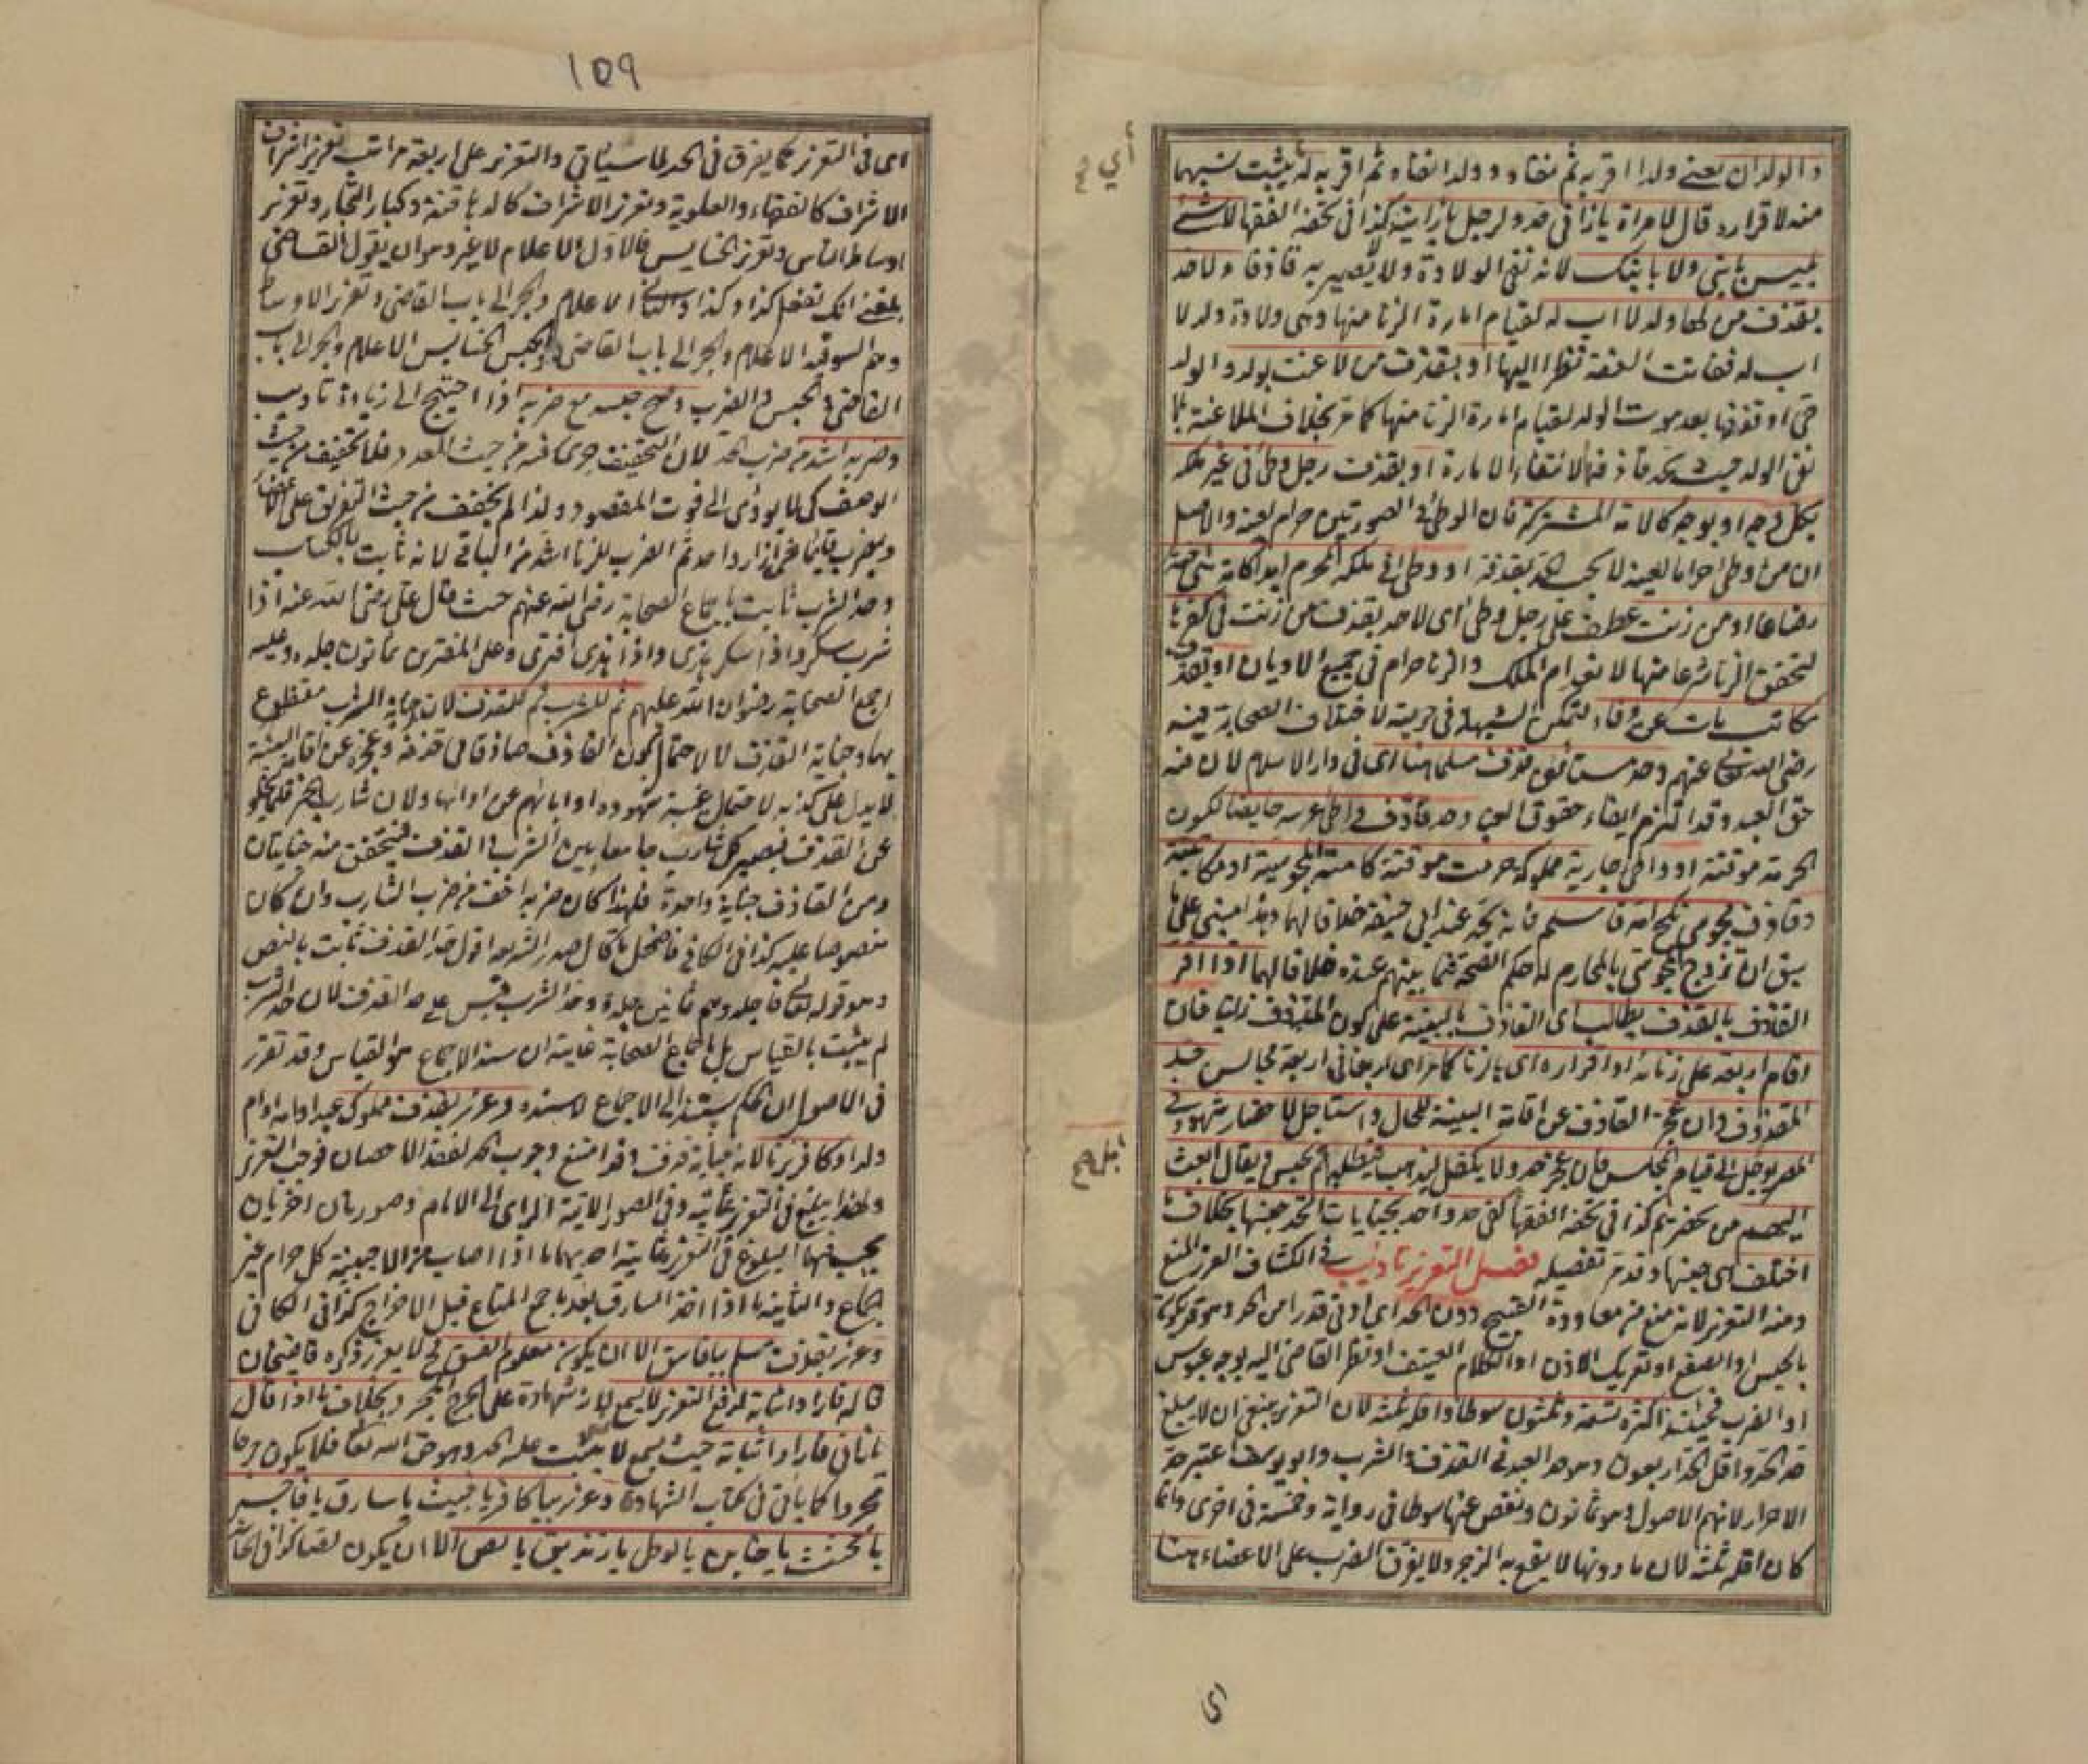 أي ح
والولدان يعني ولدا اقر به ثم نفاه وولدا نفاه ثم اقر به له يثبت نسبهما
منه لاقراره قال لامراة يازاني حد ولرجل يازانية كذا في تحفة الفقها لا شئ
بليس بابني ولا بابنك لانه نفي الولادة ولا يصير به قاذفا ولا حد
بقذف من لها ولد لا اب له لقيام امارة الزنا منها وهي ولادة ولد لا
اب له ففاتت العفة نظرا اليها او بقذف من لاعنت بولد والولد
حي او قذفها بعد موت الولد لقيام امارة الزنا منها كما مر بخلاف الملاعنة بلا
نفي الولد حيث يحد قاذفها لانتفاء الامارة او بقذف رجل وطئ في غير ملكه
بكل وجه او بوجه كالامة المشتركة فان الوطئ في الصورتين حرام لعينه والاصل
ان من وطئ حراما لعينه لا يجب الحد بقذفه او وطئ في ملكه المحرم ابدا كامة هي اخته
رضاعا او من زنت عطف على رجل وطئ اى لا حد بقذف من زنت في كفرها
لتحقق الزنا شرعا منها لانعدام الملك والزنا حرام في جميع الاديان او بقذف
مكاتب مات عن وفاء لتمكن الشبهة في حريته لاختلاف الصحابة فيه
رضى الله تعالى عنهم وحد مستأمن قذف مسلما هنا اى في دار الاسلام لان فيه
حق العبد وقد التزم ايفاء حقوق العباد وحد قاذف واطئ عرسه حايضا لكون
الحرمة موقتة او واطئ جارية مملوكة حرمت موقتة كامته المجوسية او مكاتبته
وقاذف مجوسي نكح امه فاسلم فانه يحد عند ابي حنيفة خلافا لهما وهذا مبني على ما
سبق ان تزوج المجوسي بالمحارم له حكم الصحة فيما بينهم عنده خلافا لهما اذا اقر
القاذف بالقذف يطالب اى القاذف بالبينة على كون المقذوف زانيا فان
اقام اربعة على زناه او اقراره اى بالزنا كما مر اى اربعا في اربعة مجالس حد
المقذوف وان عجز القاذف عن اقامة البينة للحال واستاجل لاحضار شهوده في
المصر يوجل الى قيام المجلس فان عجز حد ولا يكفل ليذهب فيطلبهم بل يحبس ويقال ابعث
اليهم من يحضرهم كذا في تحفة الفقها كفى حد واحد بجنايات اتحد جنسها بخلاف ما
اختلف اى جنسها وقد مر تفصيله فصل التعزير تاديب في الكشاف العزر المنع
ومنه التعزير لانه منع من معاودة القبيح دون الحد اى ادنى قدرا من الحد وهو قد يكون
بالحبس او الصفع او تعريك الاذن او الكلام العنيف او نظر القاضي اليه بوجه عبوس
او الضرب فحينئذ اكثره تسعة وثلثون سوطا واقله ثلثه لان التعزير ينبغي ان لا يبلغ
حد الحد واقل الحد اربعون وهو حد العبد في القذف والشرب وابو يوسف اعتبر حد
الاحرار لانهم الاصول وهو ثمانون ونقص عنها سوطا في رواية وخمسة في اخرى وانما
كان اقله ثلثه لان ما دونها لا يقع به الزجر ولا يفرق الضرب على الاعضاء هنا
اى
159
اى في التعزير كما يفرق في الحد لما سياتي والتعزير على اربعة مراتب تعزير اشراف
الاشراف كالفقهاء والعلوية وتعزير الاشراف كالدهاقنة وكبار التجار وتعزير
اوساط الناس وتعزير الخسايس فالاول الاعلام لا غير وهو ان يقول القاضي
بلغني انك تفعل كذا وكذا والثاني الاعلام والجر الى باب القاضي وتعزير الاوساط
وهم السوقة الاعلام والجر الى باب القاضي والحبس الخسايس الاعلام والجر الى باب
القاضي والحبس والضرب وصح حبسه مع ضربه اذا احتيج الى زيادة تاديب
وضربه اشد من ضرب الحد لان التخفيف جرى فيه من حيث العدد فلا تخفيف من حيث
الوصف كي لا يودى الى فوت المقصود ولذا لم يخفف من حيث التفريق على الاعضاء
ويضرب قايما في ازار واحد ثم الضرب للزنا اشد من الباقي لانه ثابت بالكتاب
وحد الشرب ثابت باجماع الصحابة رضى الله عنهم حيث قال علي رضى الله عنه اذا
شرب سكر واذا سكر هذى واذا هذى افترى وعلى المفترين ثمانون جلدة وعليه
اجمع الصحابة رضوان الله عليهم ثم للشرب ثم للقذف لان جناية الشرب مقطوع
بها وجناية القذف لا لاحتمال كون القاذف صادقا في قذفه وعجزه عن اقامة البينة
لا يدل على كذبه لاحتمال غيبة شهوده او ابائهم عن ادائها ولان شارب الخمر قلما يخلو
عن القذف فيصير كل شارب جامعا بين الشرب والقذف فيتحقق منه جنايتان
ومن القاذف جناية واحدة فلهذا كان ضربه اخف من ضرب الشارب وان كان
منصوصا عليه كذا في الكافي فاضمحل ما قال صدر الشريعة اقول حد القذف ثابت بالنص
وهو قوله تعالى فاجلدوهم ثمانين جلدة وحد الشرب قيس على حد القذف لان حد الشرب
لم يثبت بالقياس بل باجماع الصحابة غايته ان سند الاجماع هو القياس وقد تقرر
في الاصول ان الحكم يستند الى الاجماع لا سنده وعزر بقذف مملوك عبدا وامة او ام
ولد او كافر بزنا لانه جناية قذف وقد امتنع وجوب الحد لفقد الاحصان فوجب التعزير
ولهذا يبلغ في التعزير غايته وفي الصور الاتية الراى الى الامام وصورتان اخريان
يجب فيهما البلوغ في التعزير غايته احديهما ما اذا اصاب من الاجنبية كل حرام غير
الجماع والثانية ما اذا اخذ السارق بعد ما جمع المتاع قبل الاخراج كذا في الكافي
وعزر بقذف مسلم بيا فاسق الا ان يكون معلوم الفسق فح لا يعزر ذكره قاضيخان
قاله فاراد اثباته لدفع التعزير لا يسمع لانه شهادة على الجرح المجرد وبخلاف ما اذا قال
يازاني فاراد اثباته حيث يسمع لانه يثبت عليه الحد وهو حق الله تعالى فلا يكون جرحا
مجردا كما ياتي في كتاب الشهادة وعزر بيا كافر يا خبيث يا سارق يا فاجر
يا مخنث يا خاين يا لوطي يا زنديق يا لص الا ان يكون لصا كذا في الخانية